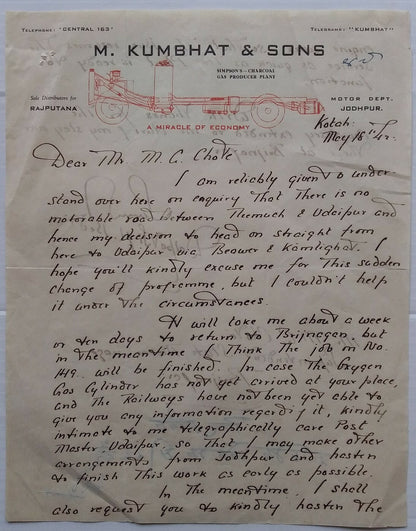 Telephone: "CENTRAL 163"
Telegrams: "KUMBHAT"
M. KUMBHAT & SONS
SIMPSON'S-CHARCOAL
GAS PRODUCER PLANT
Sole Distributors for
RAJPUTANA
MOTOR DEPT.
JODHPUR.
A MIRACLE OF ECONOMY
Kotah.
May 18th 42.
Dear Mr. M. C.
I am reliably given to under-
stand over here on enquiry that there is no
motorable road between Neemuch & Udaipur and
hence my decision to head on straight from
here to Udaipur via Beawer & Kamlighat. I
hope you'll kindly excuse me for this sudden
change of programme, but I couldn't help
it under the circumstances.
It will take me about a week
or ten days to return to Brijnagar, but
in the meantime I think the job in No.
149 will be finished. In case the Oxygen
Gas Cylinder has not yet arrived at your place,
and the Railways have not been yet able to
give you any information regarding it, kindly
intimate to me telegraphically care Post
Master, Udaipur, so that I may make other
arrangements from Jodhpur and hasten
to finish this work as early as possible.
In the meantime, I shall
also request you to kindly hasten the